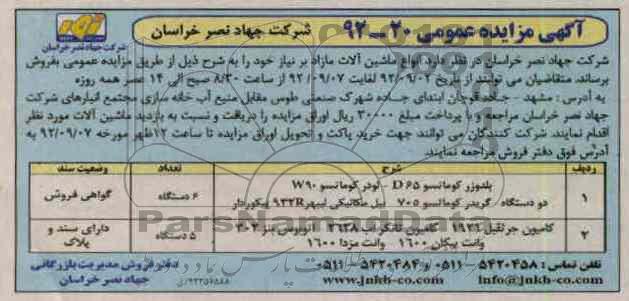 آگهی مزایده عمومی ۲۰ـــ۹۲ شرکت جهاد نصر خراسان
شرکت جهاد نصر خراسان
شرکت جهاد نصر خراسان در نظر دارد انواع ماشین آلات مازاد بر نیاز خود را به شرح ذیل از طریق مزایده عمومی بفروش
برساند. متقاضیان می توانند از تاریخ ۹۲/۰۹/۰۲ لغایت ۹۲/۰۹/۰۷ از ساعت ۸/۳۰ صبح الی ۱۴ عصر همه روزه
به آدرس : مشهد - جاده قوچان ابتدای جاده شهرک صنعتی طوس مقابل منبع آب خانه سازی مجتمع انبارهای شرکت
جهاد نصر خراسان مراجعه و با پرداخت مبلغ ۳۰۰۰۰ ریال اوراق مزایده را دریافت و نسبت به بازدید ماشین آلات مورد نظر
اقدام نمایند. شرکت کنندگان می توانند جهت خرید پاکت و تحویل اوراق مزایده تا ساعت ۱۲ظهر مورخه ۹۲/۰۹/۰۷ به
آدرس فوق دفتر فروش مراجعه نمایند.
ردیف شرح تعداد وضعیت سند
۱ بلدوزر کوماتسو D۶۵ - لودر کوماتسو W۹۰
دو دستگاه گریدر کوماتسو ۷۰۵ بیل مکانیکی لیبهر ۹۳۲R پیکوردار ۶ دستگاه گواهی فروش
۲ کامیون جرثقیل ۱۹۲۶ کامیون تانکر آب ۲۶۲۸ اتوبوس بنز ۳۰۲
وانت پیکان ۱۶۰۰ وانت مزدا ۱۶۰۰ ۵ دستگاه دارای سند و پلاک
تلفن تماس : ۵۴۲۰۴۵۸ - ۰۵۱۱ و ۵۴۲۰۴۸۴ - ۰۵۱۱
دفتر فروش مدیریت بازرگانی
www.jnkh-co.com Info@jnkh-co.com
جهاد نصر خراسان
ParsNamadData